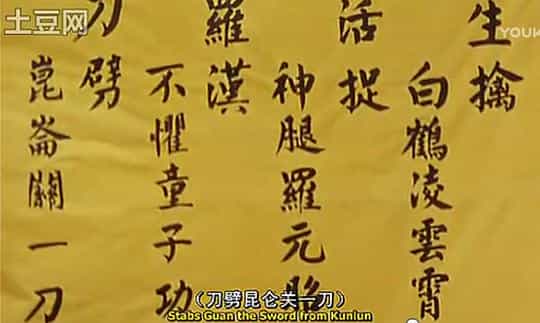 土豆网
YOUK
生擒
白鶴凌雲霄
活捉
神腿羅元
羅漢
不懼童子功
刀劈
崑崙關一刀
（刀劈昆仑关一刀）
Stabs Guan the Sword from Kunlun